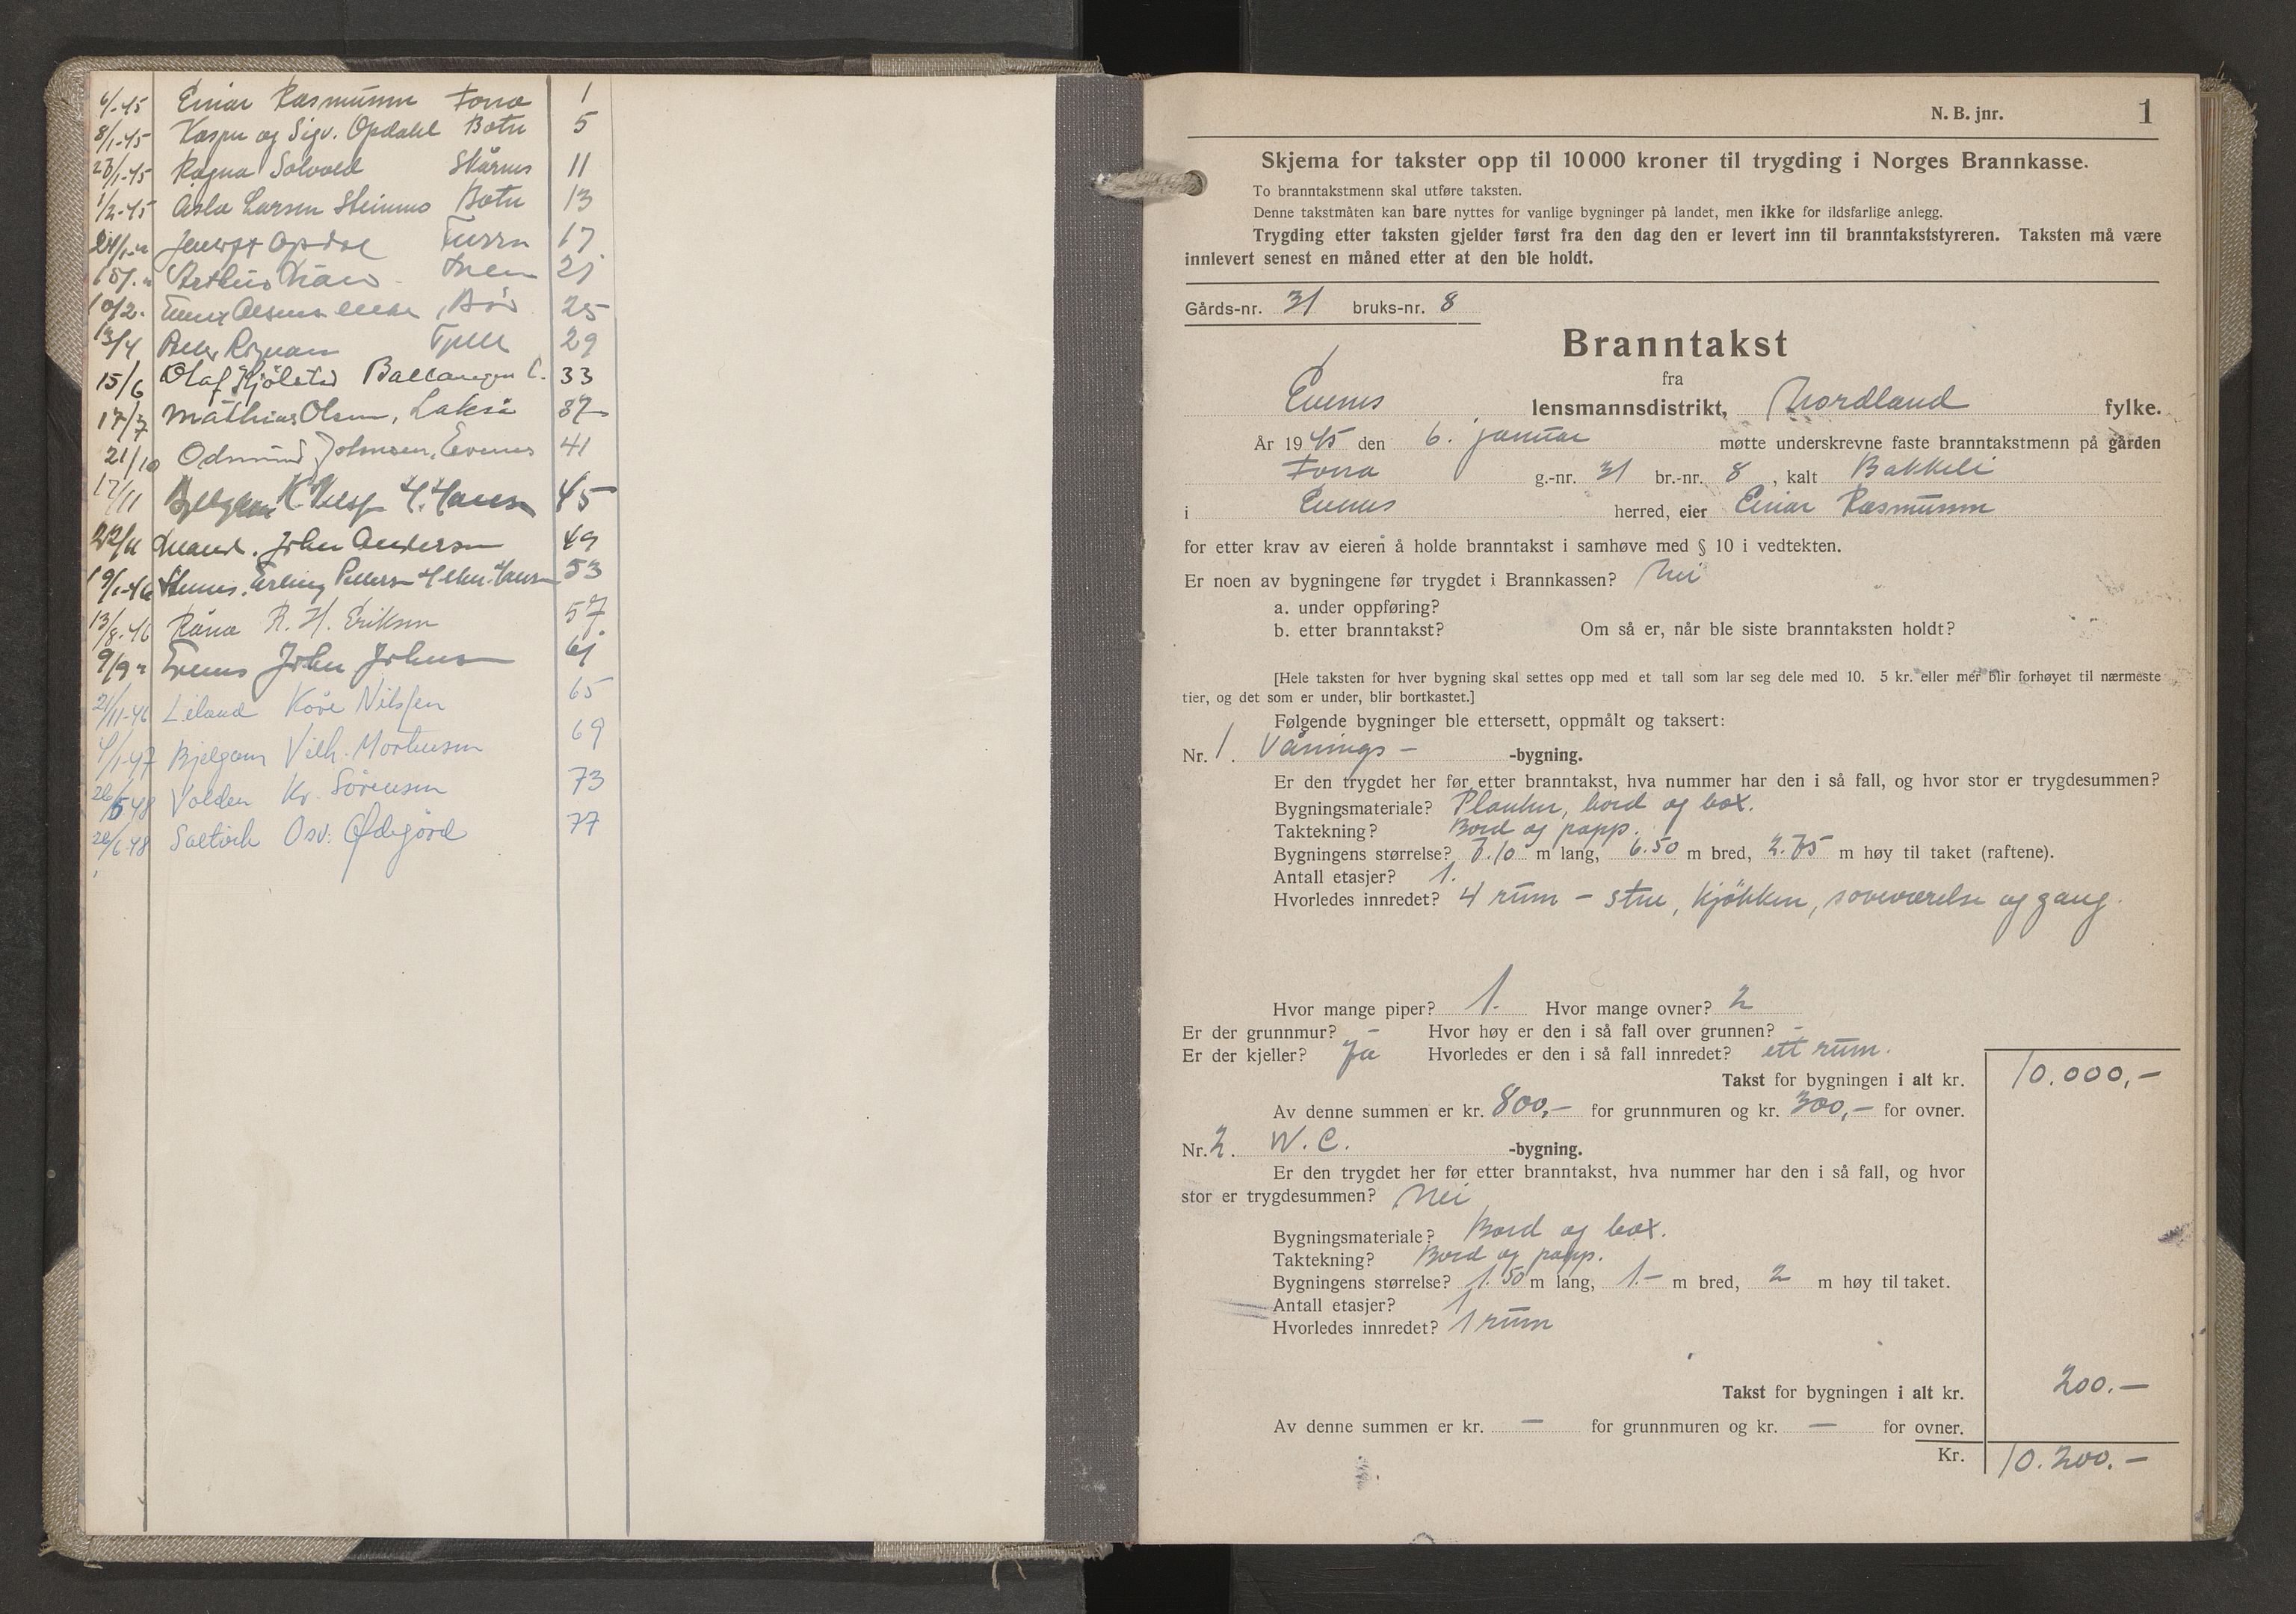 6/1-45 Einar Rasmussen Forra 1
8/1-45 Kasper og Sigv. Opdahl Botn 5
23/1-45 Ragna Solvold Skårnes 11
1/2-45 Asla Larsen Steinmo Botn 13
Opdal 17
21
10/2 25
13/4 Peder 29
15/6 Olaf Kjölstad Ballangen 33
17/7 Mathias Olsen, Lakså 37
21/10 Odmund Johnsen, Evenes 41
17/11 Hansen 45
22/11 John Andersen 49
19/1-46 Erling 53
13/8-46 Råna R. H. Eriksen 57
9/9 Evenes John Johnsen 61
21/11-46 Liland Kåre Nilssen 65
1/1-47 Bjelgam Vilh. Mortensen 69
26/5-48 Volden Kr. Sörensen 73
26/6-48 Saltvik Osv. Ödegård 77
N. B. jnr. 1
Skjema for takster opp til 10000 kroner til trygding i Norges Brannkasse.
To branntakstmenn skal utføre taksten.
Denne takstmåten kan bare nyttes for vanlige bygninger på landet, men ikke for ildsfarlige anlegg.
Trygding etter taksten gjelder først fra den dag den er levert inn til branntakststyreren. Taksten må være
innlevert senest en måned etter at den ble holdt.
Gårds-nr. 31 bruks-nr. 8
Branntakst
fra
Evenes lensmannsdistrikt, Nordland fylke.
År 1945 den 6. januar møtte underskrevne faste branntakstmenn på gården
Forra g.-nr. 31 br.-nr. 8, kalt Bakkeli
i Evenes herred, eier Einar Rasmussen
for etter krav av eieren å holde branntakst i samhøve med § 10 i vedtekten.
Er noen av bygningene før trygdet i Brannkassen? Nei
a. under oppføring?
b. etter branntakst? Om så er, når ble siste branntaksten holdt?
[Hele taksten for hver bygning skal settes opp med et tall som lar seg dele med 10. 5 kr. eller mer blir forhøyet til nærmeste
tier, og det som er under, blir bortkastet.]
Følgende bygninger ble ettersett, oppmålt og taksert:
Nr. 1. Vånings- -bygning.
Er den trygdet her før etter branntakst, hva nummer har den i så fall, og hvor stor er trygdesummen?
Bygningsmateriale? Planker, bord og box.
Taktekning? Bord og papp.
Bygningens størrelse? 7.10 m lang, 6.50 m bred, 2.75 m høy til taket (raftene).
Antall etasjer? 1.
Hvorledes innredet? 4 rum - stue, kjökken, soveværelse og gang.
Hvor mange piper? 1. Hvor mange ovner? 2
Er der grunnmur? - Hvor høy er den i så fall over grunnen? -
Er der kjeller? Ja Hvorledes er den i så fall innredet? ett rum.
Takst for bygningen i alt kr. 10.000,-
Av denne summen er kr. 800,- for grunnmuren og kr. 300,- for ovner.
Nr. 2. W.C. -bygning.
Er den trygdet her før etter branntakst, hva nummer har den i så fall, og hvor
stor er trygdesummen? Nei
Bygningsmateriale? Bord og box.
Taktekning? Bord og papp.
Bygningens størrelse? 1.50 m lang, 1.- m bred, 2 m høy til taket.
Antall etasjer? 1
Hvorledes innredet? 1 rum
Takst for bygningen i alt kr. 200.-
Av denne summen er kr. - for grunnmuren og kr. - for ovner.
Kr. 10.200.-